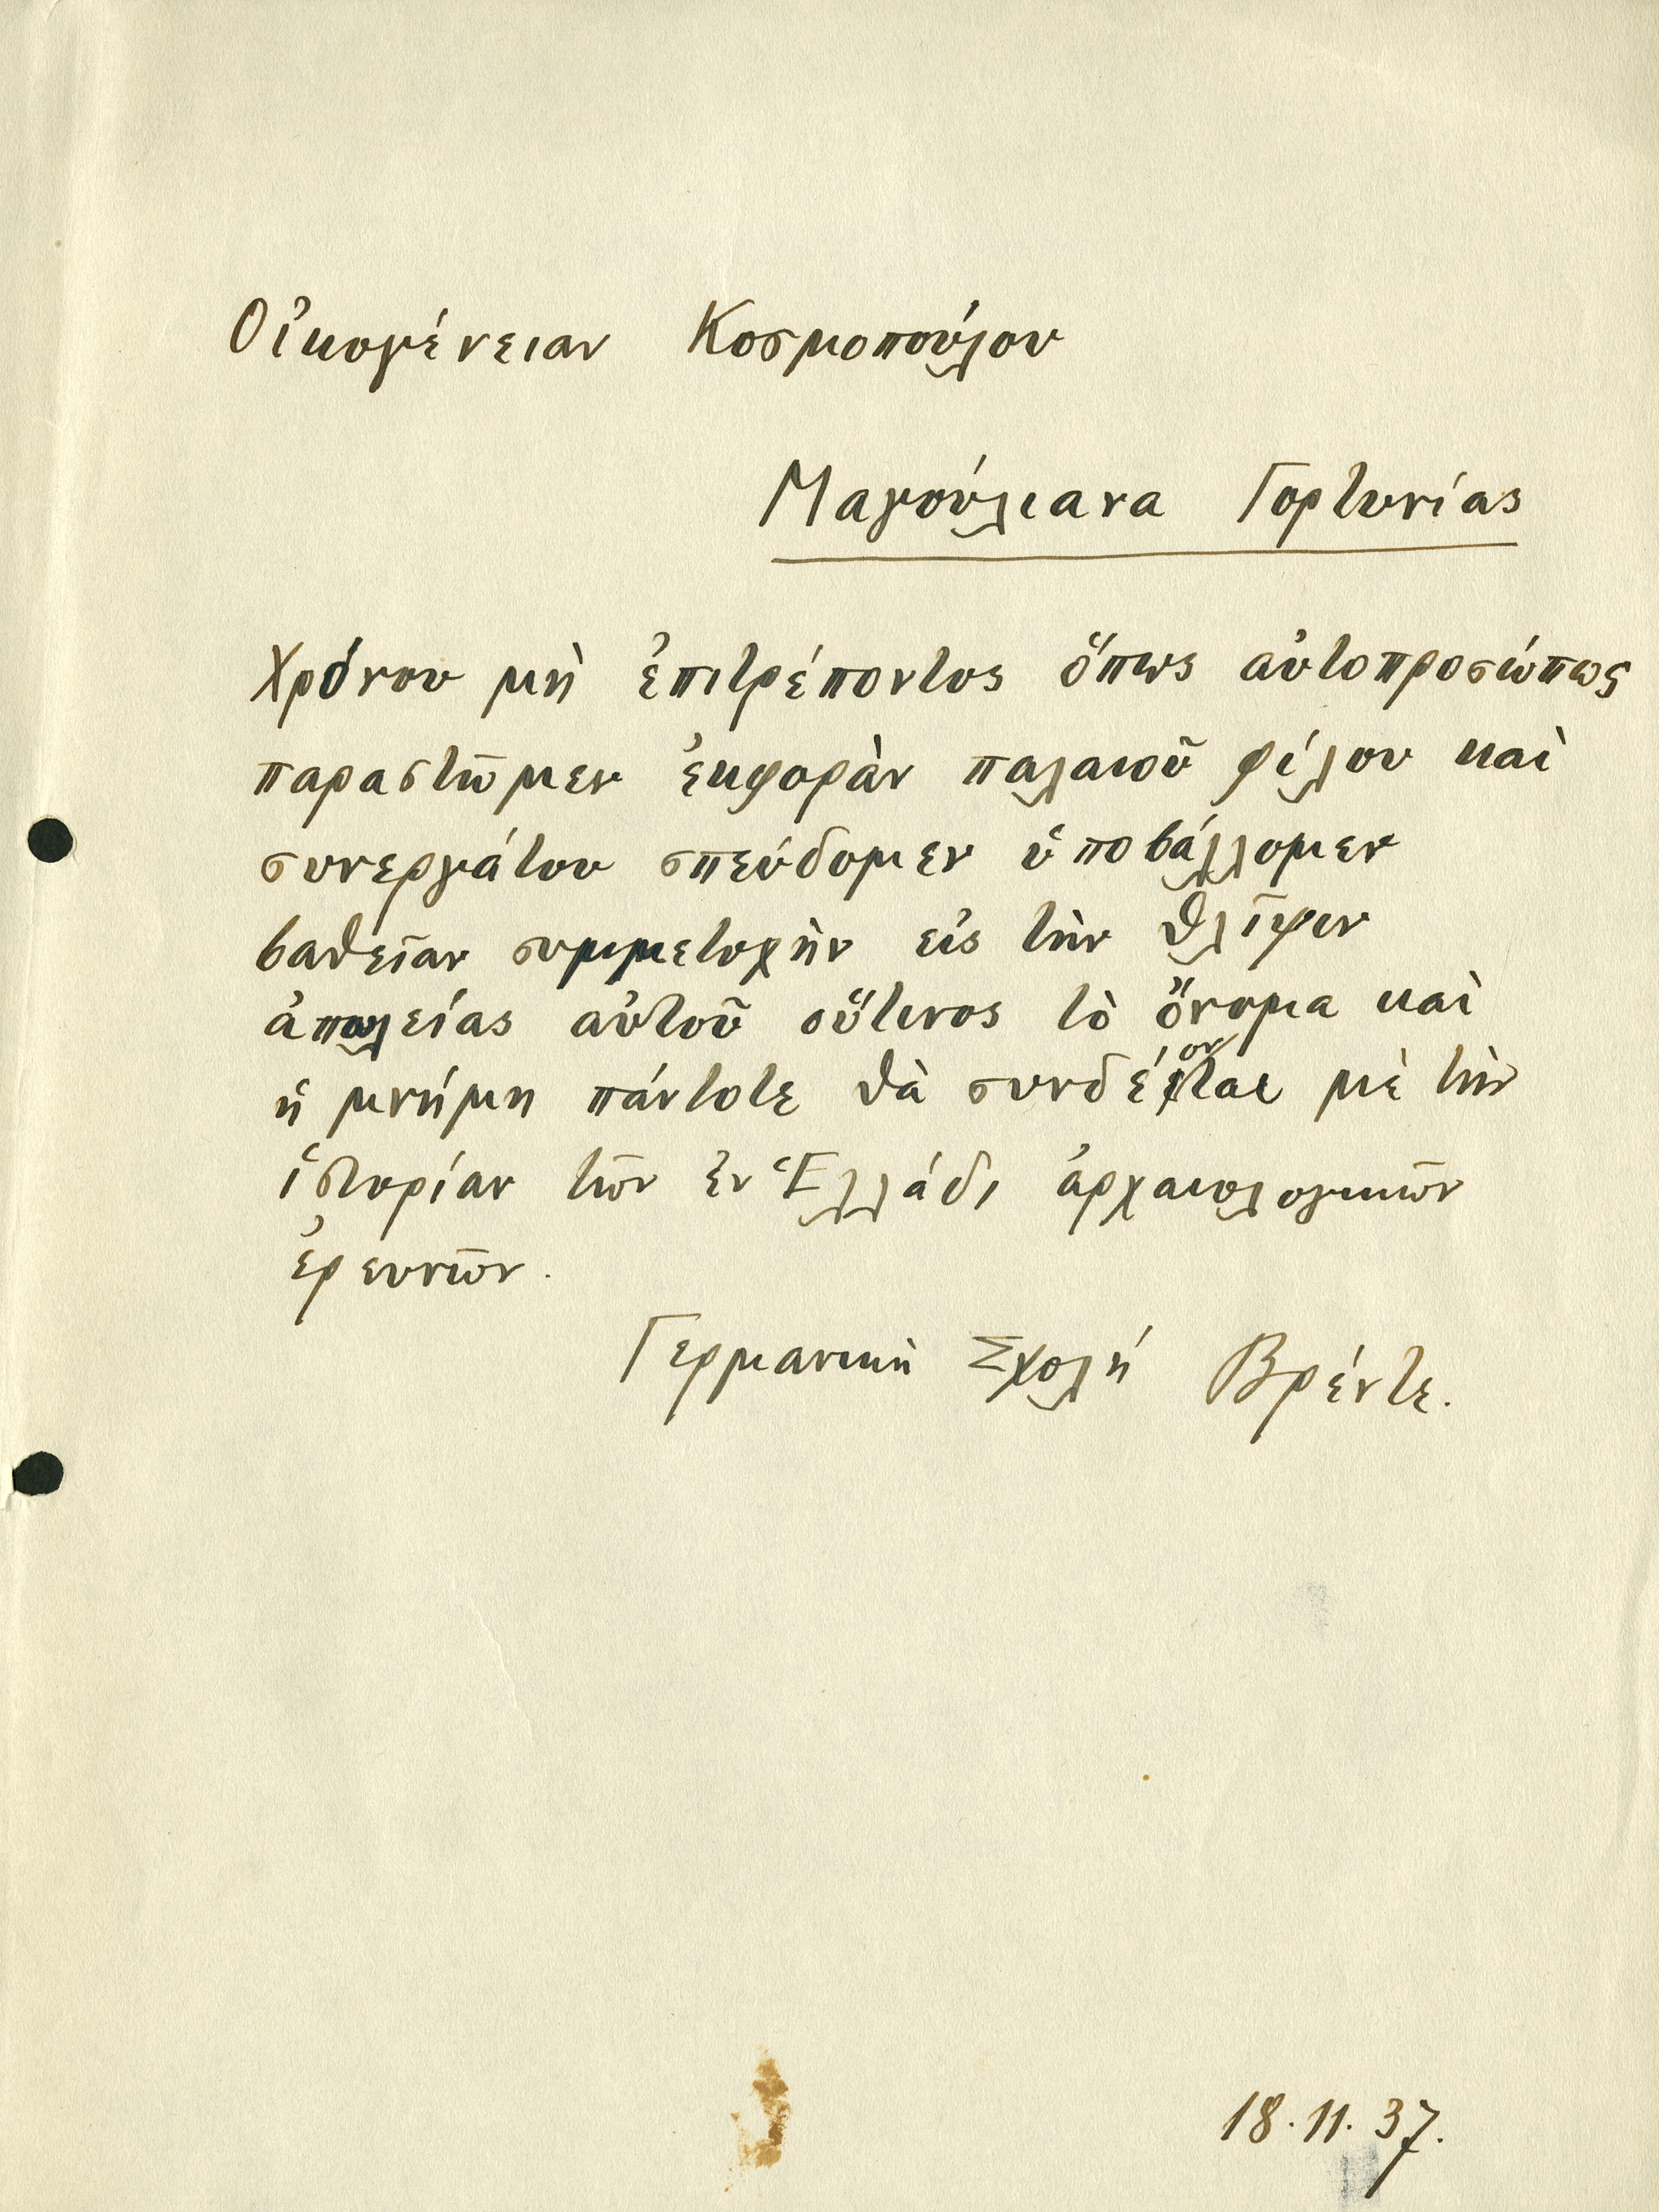 Οἰκογένειαν Κοσμοπούλου
Μαγούλιανα Γορτυνίας
Χρόνου μὴ ἐπιτρέποντος ὅπως αὐτοπροσώπως
παραστῶμεν ἐκφορὰν παλαιοῦ φίλου καὶ
συνεργάτου σπεύδομεν ὑποβάλλομεν
βαθεῖαν συμμετοχὴν εἰς τὴν θλῖψιν
ἀπωλείας αὐτοῦ οὕτινος τὸ ὄνομα καὶ
ἡ μνήμη πάντοτε θὰ συνδέονται μὲ τὴν
ἱστορίαν τῶν ἐν Ἑλλάδι ἀρχαιολογικῶν
ἐρευνῶν.
Γερμανικὴ Σχολή Βρέντε.
18.11.37.